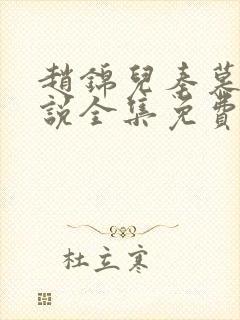 趙錦兒秦慕
說全集免費
杜立寒